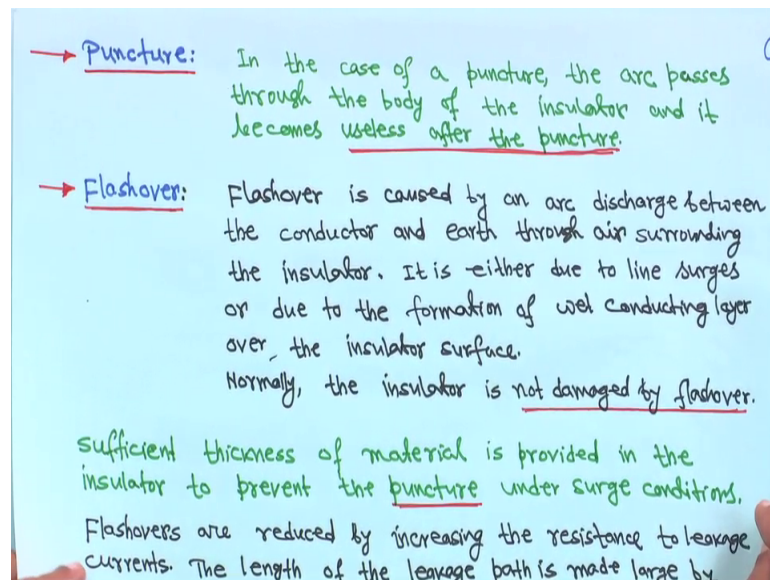 → Puncture: In the case of a puncture, the arc passes
through the body of the insulator and it
becomes useless after the puncture.
→ Flashover: Flashover is caused by an arc discharge between
the conductor and earth through air surrounding
the insulator. It is either due to line surges
or due to the formation of wet conducting layer
over the insulator surface.
Normally, the insulator is not damaged by flashover.
sufficient thickness of material is provided in the
insulator to prevent the puncture under surge conditions.
Flashovers are reduced by increasing the resistance to leakage
currents. The length of the leakage path is made large by